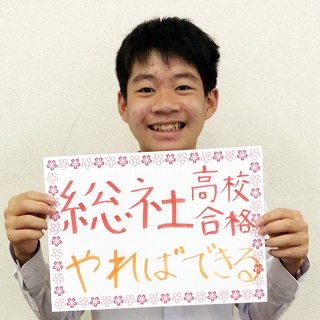 総社高校合格
やればできる